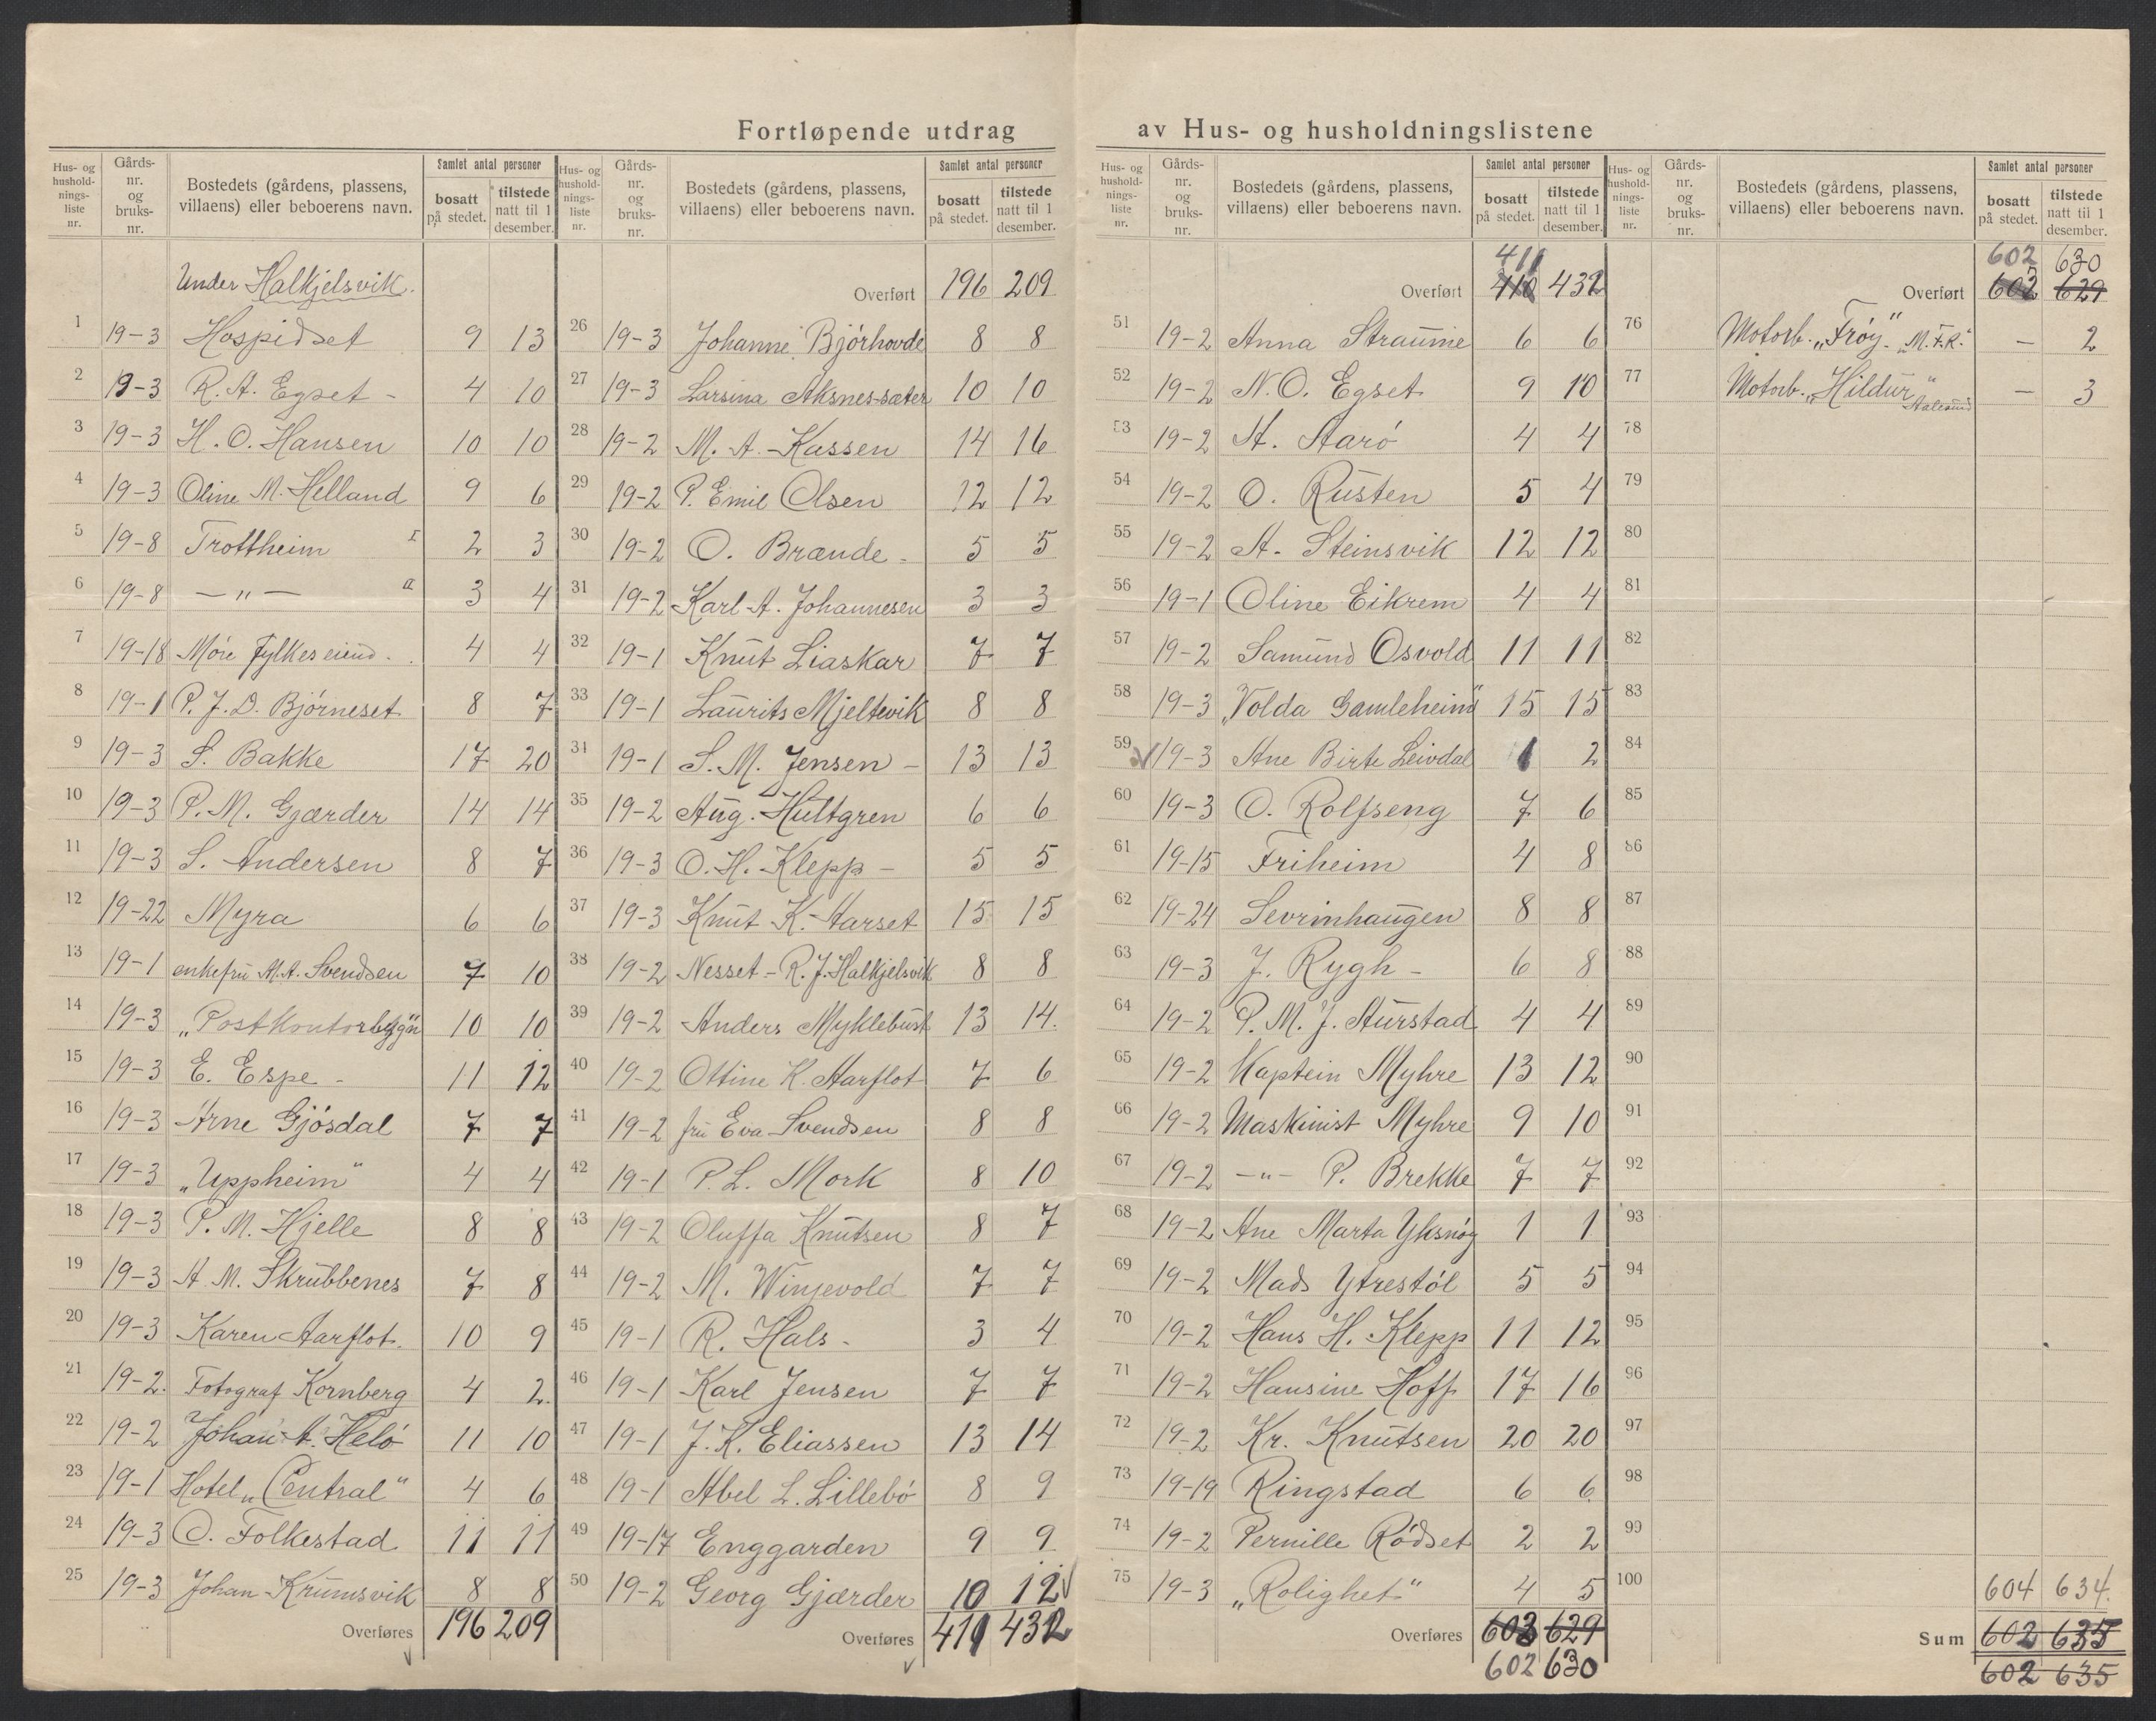 Fortløpende utdrag av Hus- og husholdningslistene
Hus- og hushold-nings-liste nr. | Gårds-nr. og bruks-nr. | Bostedets (gårdens, plassens, villaens) eller beboerens navn. | Samlet antal personer | bosatt på stedet. | tilstede natt til 1 desember.
Under Halkjelsvik.
1 19-3 Hospidset 9 13
2 19-3 R. A. Egset - 4 10
3 19-3 H. O. Hansen 10 10
4 19-3 Oline M. Helland 9 6
5 19-8 Trottheim I 2 3
6 19-8 — " — II 3 4
7 19-18 Møre fylkes eiend. 4 4
8 19-1 P. J. D. Bjørneset 8 7
9 19-3 S. Bakke 17 20
10 19-3 P. M. Gjærder 14 14
11 19-3 S. Andersen 8 7
12 19-22 Myra 6 6
13 19-1 enkefru M. A. Svendsen 7 10
14 19-3 „Postkontorbyggn" 10 10
15 19-3 E. Espe - 11 12
16 19-3 Arne Gjøsdal 7 7
17 19-3 „Uppheim" 4 4
18 19-3 P. M. Hjelle 8 8
19 19-3 A. M. Skrubbenes 7 8
20 19-3 Karen Aarflot. 10 9
21 19-2. Fotograf Kornberg 4 2.
22 19-2 Johan A. Helø 11 10
23 19-1 Hotel „Central" 4 6
24 19-3 O. Folkestad 11 11
25 19-3 Johan Krumsvik 8 8
Overføres 196 209
Hus- og hushold-nings-liste nr. | Gårds-nr. og bruks-nr. | Bostedets (gårdens, plassens, villaens) eller beboerens navn. | Samlet antal personer | bosatt på stedet. | tilstede natt til 1 desember.
Overført 196 209
26 19-3 Johanne Bjørhovde 8 8
27 19-3 Larsina Aksnes-sæter 10 10
28 19-2 M. A. Kassen 14 16
29 19-2 P. Emil Olsen 12 12
30 19-2 O. Brande - 5 5
31 19-2 Karl A. Johannesen 3 3
32 19-1 Knut Liaskar 7 7
33 19-1 Laurits Mjeltevik 8 8
34 19-1 S. M. Jensen - 13 13
35 19-2 Aug. Hultgren 6 6
36 19-3 O. H. Klepp - 5 5
37 19-3 Knut K. Aarset 15 15
38 19-2 Nesset - R. J. Halkjelsvik 8 8
39 19-2 Anders Myklebust 13 14.
40 19-2 Ottine K. Aarflot 7 6
41 19-2 fru Eva Svendsen 8 8
42 19-1 P. L. Mork 8 10
43 19-2 Oluffa Knutsen 8 7
44 19-2 M. Winjevold 7 7
45 19-1 R. Hals - 3 4
46 19-1 Karl Jensen 7 7
47 19-1 J. K. Eliassen 13 14
48 19-1 Abel L. Lillebø 8 9
49 19-17 Enggarden 9 9
50 19-2 Georg Gjærder 10 12
Overføres 411 432
Hus- og hushold-nings-liste nr. | Gårds-nr. og bruks-nr. | Bostedets (gårdens, plassens, villaens) eller beboerens navn. | Samlet antal personer | bosatt på stedet. | tilstede natt til 1 desember.
411
Overført 410 432
51 19-2 Anna Straume 6 6
52 19-2 N. O. Egset 9 10
53 19-2 A. Aarø 4 4
54 19-2 O. Rusten 5 4
55 19-2 A. Steinsvik 12 12
56 19-1 Oline Eikrem 4 4
57 19-2 Samund Osvold 11 11
58 19-3 „Volda Gamleheim" 15 15
59 19-3 Ane Birte Leivdal 1 2
60 19-3 O. Rolfseng 7 6
61 19-15 Friheim 4 8
62 19-24 Sevrinhaugen 8 8
63 19-3 J. Rygh - 6 8
64 19-2 P. M. J. Aurstad 4 4
65 19-2 Kaptein Myhre 13 12
66 19-2 Maskinist Myhre 9 10
67 19-2 -"- P. Brekke 7 7
68 19-2 Ane Marta Yksnøy 1 1
69 19-2 Mads Ytrestøl 5 5
70 19-2 Hans H. Klepp 11 12
71 19-2 Hansine Hoff 17 16
72 19-2 Kr. Knutsen 20 20
73 19-19 Ringstad 6 6
74 19-2 Pernille Rødset 2 2
75 19-3 „Rolighet" 4 5
Overføres 603 629
602 630
Hus- og hushold-nings-liste nr. | Gårds-nr. og bruks-nr. | Bostedets (gårdens, plassens, villaens) eller beboerens navn. | Samlet antal personer | bosatt på stedet. | tilstede natt til 1 desember.
602 630
Overført 602 629
76 Motorb. „Frøy" „M.F.R." — 2
77 Motorb. „Hildur" Aalesund — 3
78
79
80
81
82
83
84
85
86
87
88
89
90
91
92
93
94
95
96
97
98
99
100 604 634.
Sum 602 635
602 635